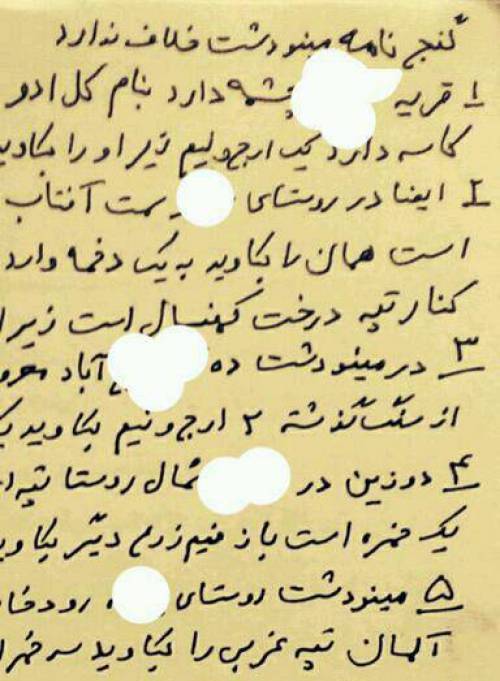 گنج نامه مینودشت خلاف ندارد
۱ قریه چشمه دارد بنام کل ادو
کاسه دارد یک ارج ونیم زیر او را بکاوید
۲ ایضا در روستای سمت آفتاب
است همان را بکاوید به یک دخمه وارد
کنار تپه درخت کهنسال است زیر ا
۳ در مینودشت ده آباد معرو
از سنگ گذشته ۲ ارج ونیم بکاوید یک
۴ دوزین در شمال روستا تپه ا
یک خمره است باز نیم زرع دیگر بکاوید
۵ مینودشت روستای رودخا
آلمان تپه غربی را بکاوید سه خمر